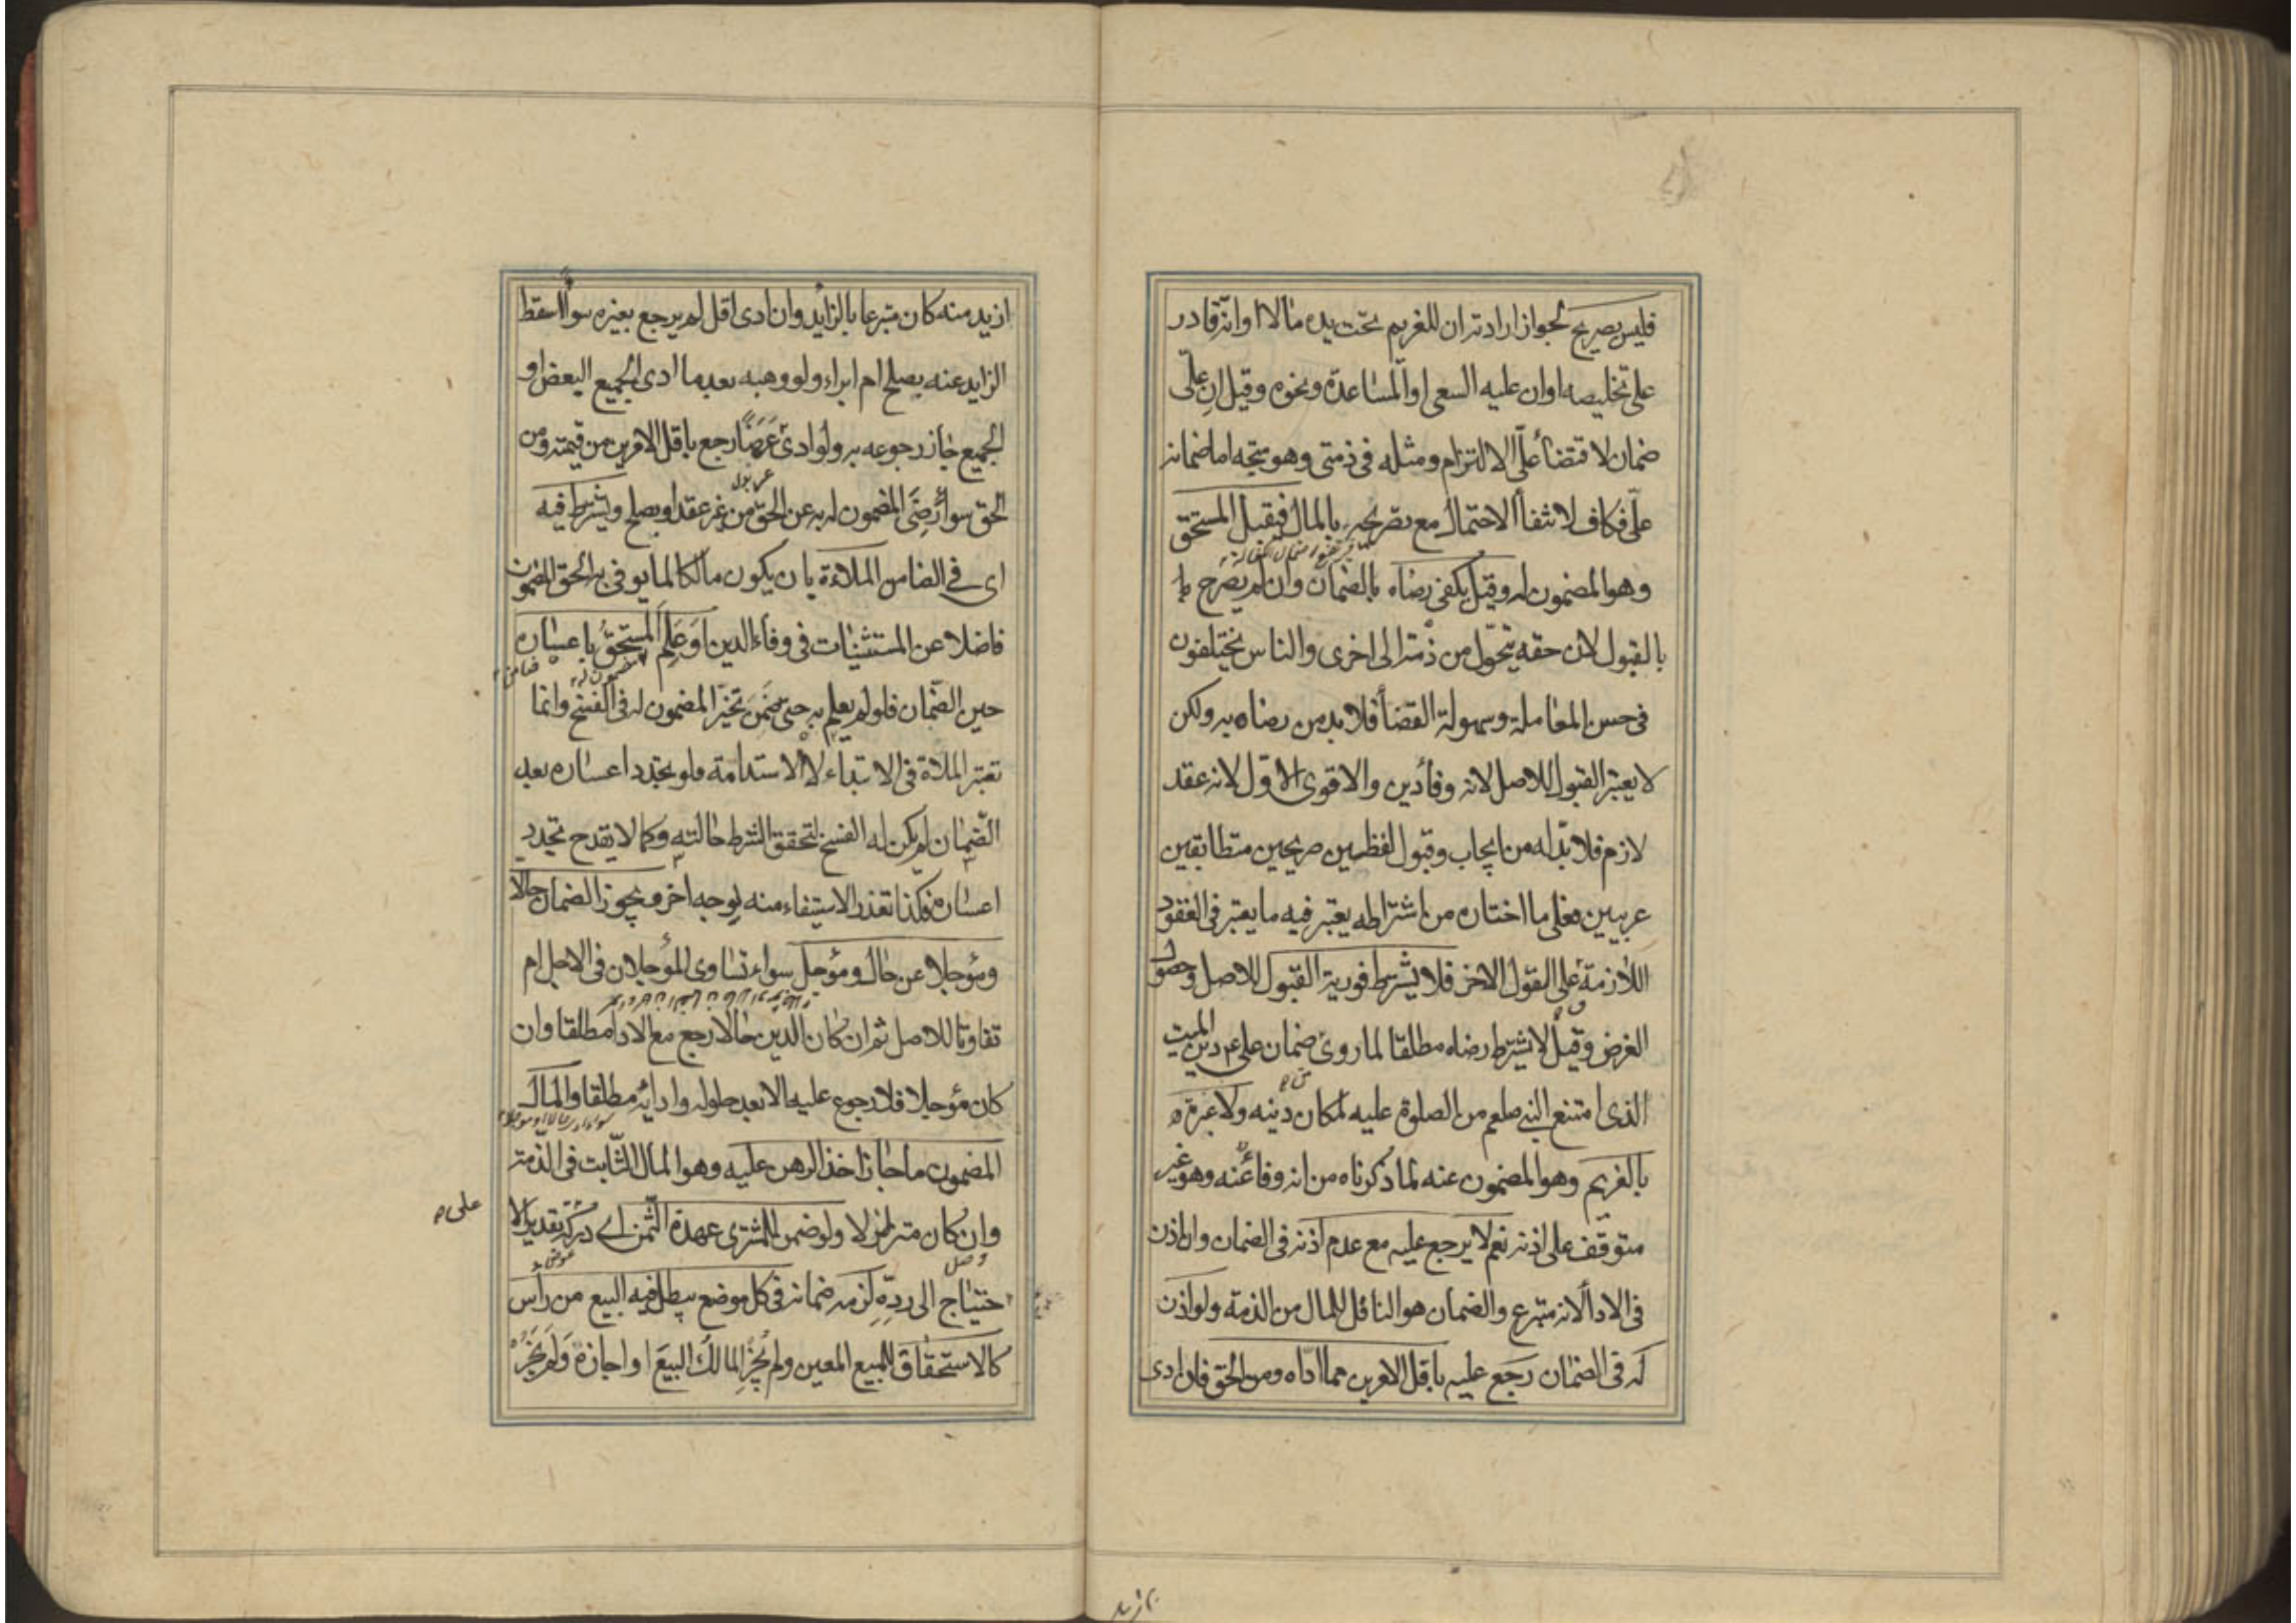 فليس بصريح لجواز ارادته ان للغريم تحت يده مالا او انه قادر
على تخليصه او ان عليه السعى او المساعدة ونحوه وقيل ان علّى
ضمان لاقتضاء علىّ الالتزام ومثله فى ذمتى وهو متجه اما ضمانه
علىّ فكاف لانتفاء الاحتمال مع تصريحه بالمال فيقبل المستحق
وهو المضمون له وقيل يكفى رضاه بالضمان وان لم يصرح با
بالقبول لان حقه يتحوّل من ذمة الى اخرى والناس يختلفون
فى حسن المعاملة وسهولة القضاء فلا بد من رضاه به ولكن
لا يعتبر القبول للاصل لانه وفاء دين والاقوى الاول لانه عقد
لازم فلا بدّ له من ايجاب وقبول لفظيين صريحين متطابقين
عربيين فعلى ما اختاره من اشتراطه يعتبر فيه ما يعتبر فى العقود
اللازمة على القول الاخر فلا يشترط فورية القبول للاصل وحصول
الغرض وقيل لا يشترط رضاه مطلقا لما روى ضمان على ع دين الميت
الذى امتنع النبى صلعم من الصلوة عليه لمكان دينه ولا عبرة
بالغريم وهو المضمون عنه لما ذكرناه من انه وفاء عنه وهو غير
متوقف على اذنه نعم لا يرجع عليه مع عدم اذنه فى الضمان وان اذن
فى الاداء لانه متبرع والضمان هو الناقل للمال من الذمة ولو اذن
له فى الضمان رجع عليه باقل الامرين مما اداه ومن الحق فان ادى
ازيد منه كان متبرعا بالزايد وان ادى اقل لم يرجع بغيره سواء اسقط
الزايد عنه بصلح ام ابراء ولو وهبه بعد ما ادى الجميع البعض او
الجميع جاز رجوعه به ولو ادى عَرَضاً رجع باقل الامرين من قيمته ومن
الحق سواء رَضِىَ المضمون له به عن الحق من غير عقد او بصلح ويشترط فيه
اى فى الضامن الملاءة بان يكون مالكا لما يوفى به الحق المضمون
فاضلا عن المستثنيات فى وفاء الدين اَو عَلِمَ المستحقُ باعساره
مضمون له
ضامن
حين الضمان فلو لم يعلم به حتى ضمن تخيّر المضمون له فى الفسخ وانما
تعتبر الملاءة فى الابتداء لا الاستدامة فلو تجدد اعساره بعد
الضّمان لم يكن له الفسخ لتحقق الشرط حالته وكما لا يقدح تجدد
اعساره فكذا تعذر الاستيفاء منه بوجه اخر ويجوز الضمان حالا
ومؤجلا عن حال ومؤجل سواء تساوى المؤجلان فى الاجل ام
تفاوتا للاصل ثم ان كان الدين حالا رجع مع الاداء مطلقا وان
كان مؤجلا فلا رجوع عليه الا بعد حلوله وادائه مطلقا والمال
المضمون ما جاز اخذ الرهن عليه وهو المال الثّابت فى الذّمة
وان كان متزلزلا ولو ضمن للمشترى عهدة الثّمن اى دركه بتقدير الا
على
حتياج الى ردّه لزمه ضمانه فى كل موضع يبطل فيه البيع من رأس
كالاستحقاق للمبيع المعين ولم يُجُزِ المالك البيعَ او اجازه ولم يُجِز